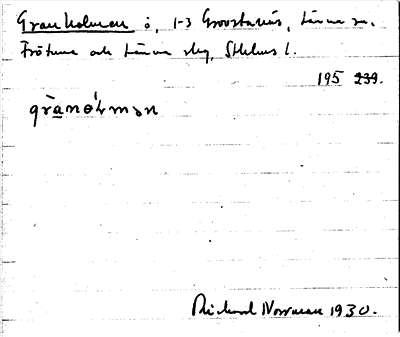 Granholmen ö, 1-3 Grovstanäs, Länna sn.
Frötuna och Länna skg, Sthlms l.
195 239.
grànόḷmən
Rickard Norrman 1930.